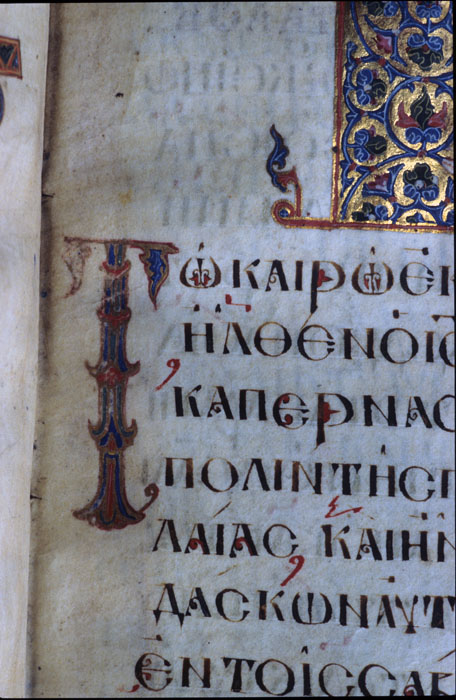 Τῶ ΚΑΙΡῶ ἘΚ
ἮΛΘΕΝ Ὁ ΙϹ
ΚΑΠΕΡΝΑΟ
ΠΌΛΙΝ ΤΗ͂Ϲ Γ
ΛΑΊΑϹ, ΚΑῚ ἮΝ
ΔΑϹΚΩΝ ΑΥΤ
ἘΝ ΤΟΙ͂Ϲ ϹΑΒ